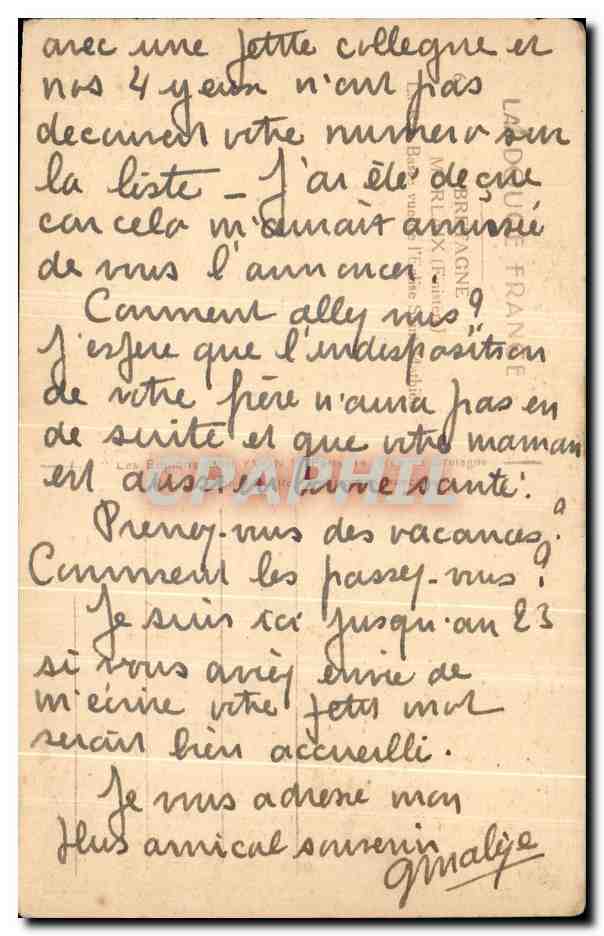 avec une petite collègue et
nos 4 yeux n'ont pas
decouvert votre numero sur
la liste _ J'ai été deçue
car cela m'aurait amusée
de vous l'annoncer.
Comment allez vous ?
J'espère que l'indisposition
de votre père n'aura pas eu
de suite et que votre maman
est aussi en bonne santé.
Prenez-vous des vacances ?
Comment les passez-vous ?
Je suis ici jusqu'au 23
si vous aviez envie de
m'écrire votre petit mot
serait bien accueilli.
Je vous adresse mon
plus amical souvenir
LA DOUCE FRANCE
BRETAGNE
MORLAIX (Finistère)
CPAPHIL